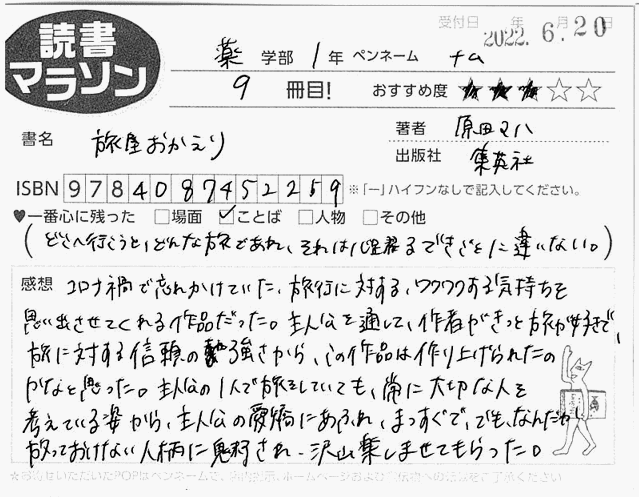 読書
マラソン
受付日 年 月 日
2022. 6. 20
薬 学部 1 年 ペンネーム
9 冊目! おすすめ度 ★★★☆☆
書名 旅屋おかえり
著者 原田マハ
出版社 集英社
ISBN 9784087452259 ※「-」ハイフンなしで記入してください。
♥一番心に残った □場面 ☑ことば □人物 □その他
(どこへ行こうと、どんな旅であれ、それは心躍るできごとに違いない。)
感想 コロナ禍で忘れかけていた、旅行に対する、ワクワクする気持ちを
思い出させてくれる作品だった。主人公を通して、作者がきっと旅が好きで、
旅に対する信頼の強さから、この作品は作り上げられたの
かなと思った。主人公の1人で旅をしていても、常に大切な人を
考えている姿から、主人公の愛嬌にあふれ、まっすぐで、でも、なんだか
放っておけない人柄に魅了され、沢山楽しませてもらった。
☆お寄せいただいたPOPはペンネームで、ホームページおよび